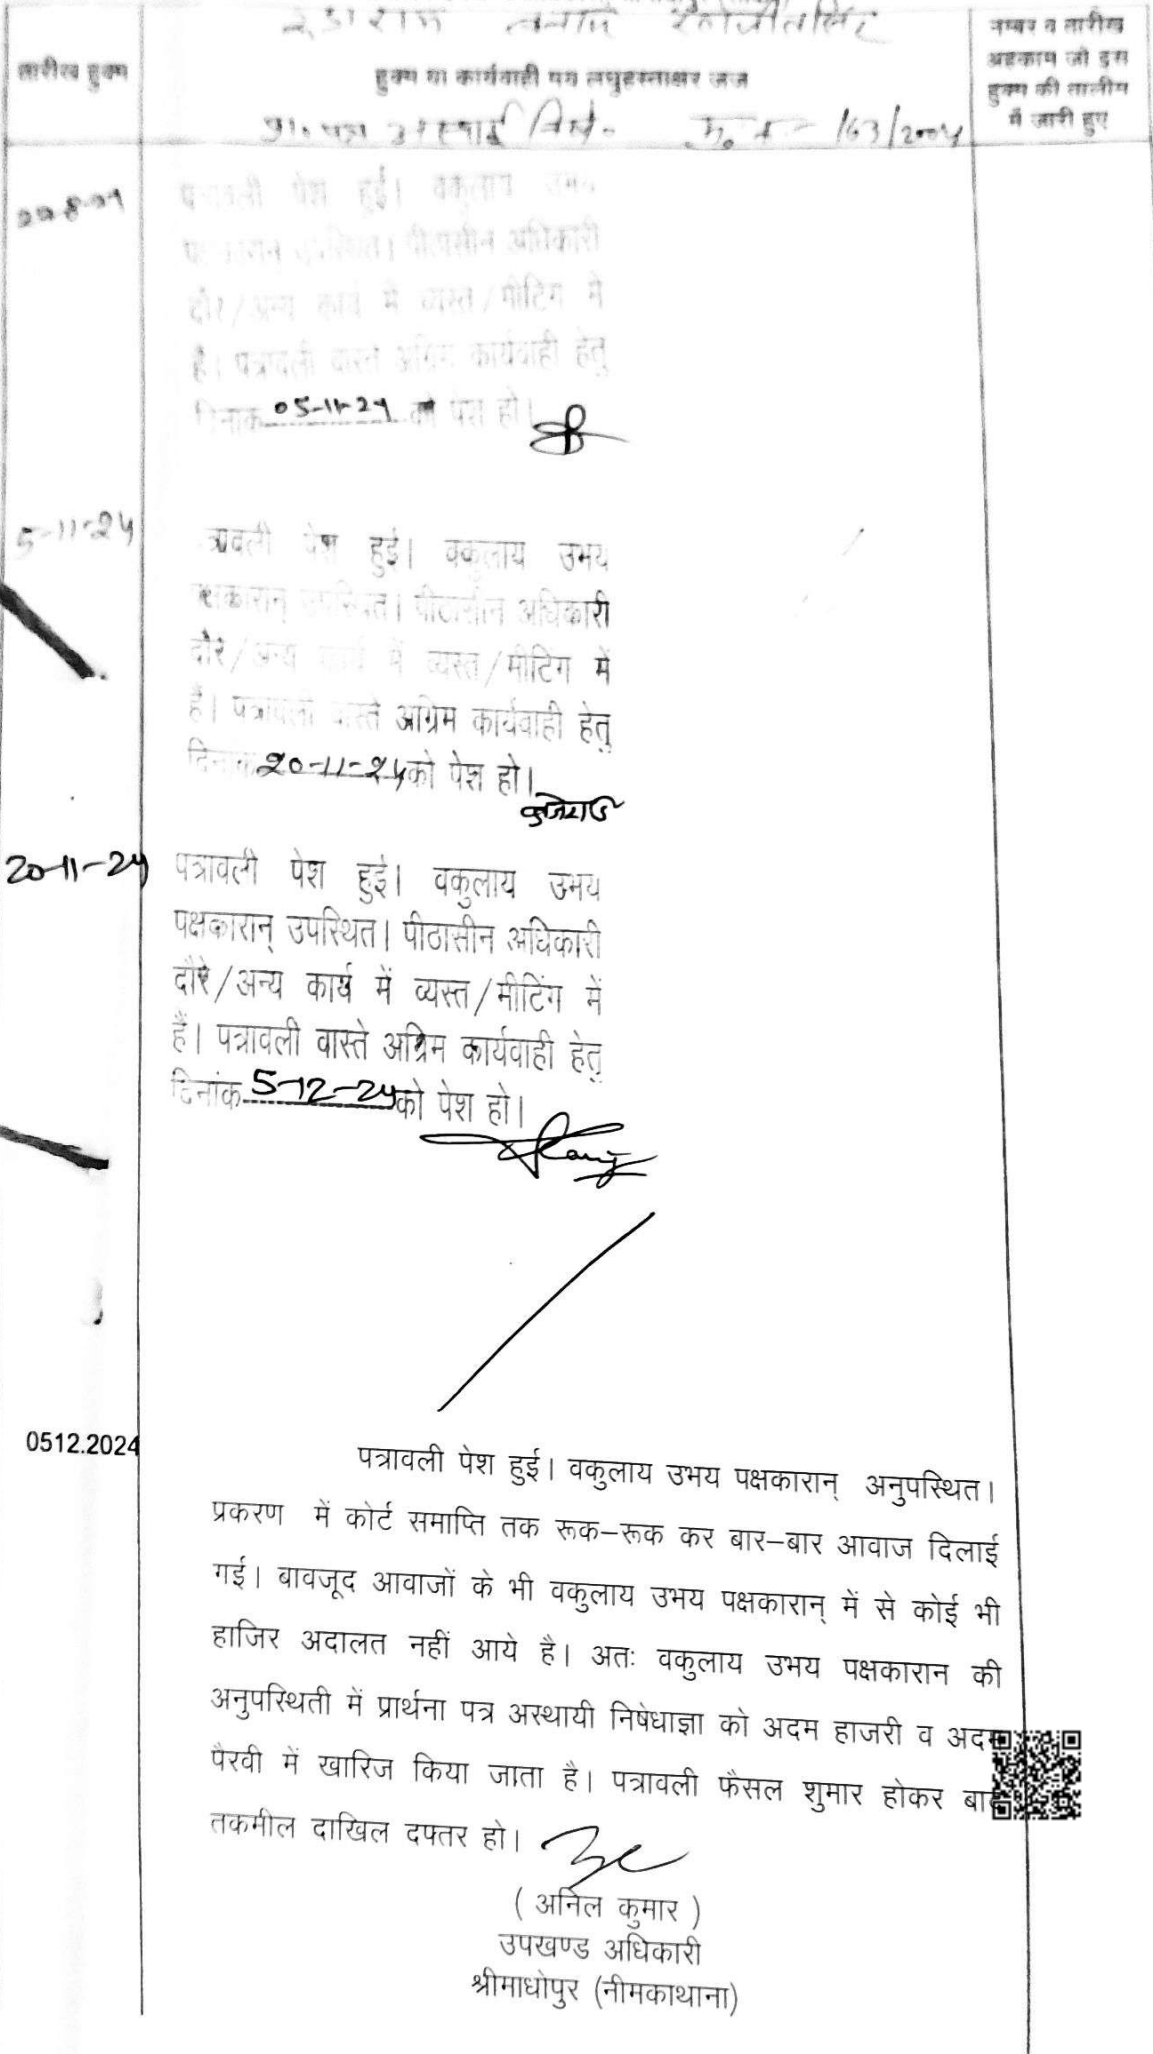 बनाम
तारीख हुक्म
हुक्म या कार्यवाही मय लघुहस्ताक्षर जज
नम्बर व तारीख
अहकाम जो इस
हुक्म की तालीम
में जारी हुए
प्रा. पत्र अस्थाई नि.षे. मु. न. - 163/2004
पत्रावली पेश हुई। वकुलाय उभय
पक्षकारान् उपस्थित। पीठासीन अधिकारी
दौरे/अन्य कार्य में व्यस्त/मीटिंग में
है। पत्रावली वास्ते अग्रिम कार्यवाही हेतु
दिनांक 05-11-24 को पेश हो।
5-11-24
पत्रावली पेश हुई। वकुलाय उभय
पक्षकारान् उपस्थित। पीठासीन अधिकारी
दौरे/अन्य कार्य में व्यस्त/मीटिंग में
है। पत्रावली वास्ते अग्रिम कार्यवाही हेतु
दिनांक 20-11-24 को पेश हो।
20-11-24
पत्रावली पेश हुई। वकुलाय उभय
पक्षकारान् उपस्थित। पीठासीन अधिकारी
दौरे/अन्य कार्य में व्यस्त/मीटिंग में
हैं। पत्रावली वास्ते अग्रिम कार्यवाही हेतु
दिनांक 5-12-24 को पेश हो।
0512.2024
पत्रावली पेश हुई। वकुलाय उभय पक्षकारान् अनुपस्थित।
प्रकरण में कोर्ट समाप्ति तक रूक–रूक कर बार–बार आवाज दिलाई
गई। बावजूद आवाजों के भी वकुलाय उभय पक्षकारान् में से कोई भी
हाजिर अदालत नहीं आये है। अतः वकुलाय उभय पक्षकारान की
अनुपस्थिती में प्रार्थना पत्र अस्थायी निषेधाज्ञा को अदम हाजरी व अदम
पैरवी में खारिज किया जाता है। पत्रावली फैसल शुमार होकर बाद
तकमील दाखिल दफ्तर हो।
( अनिल कुमार )
उपखण्ड अधिकारी
श्रीमाधोपुर (नीमकाथाना)